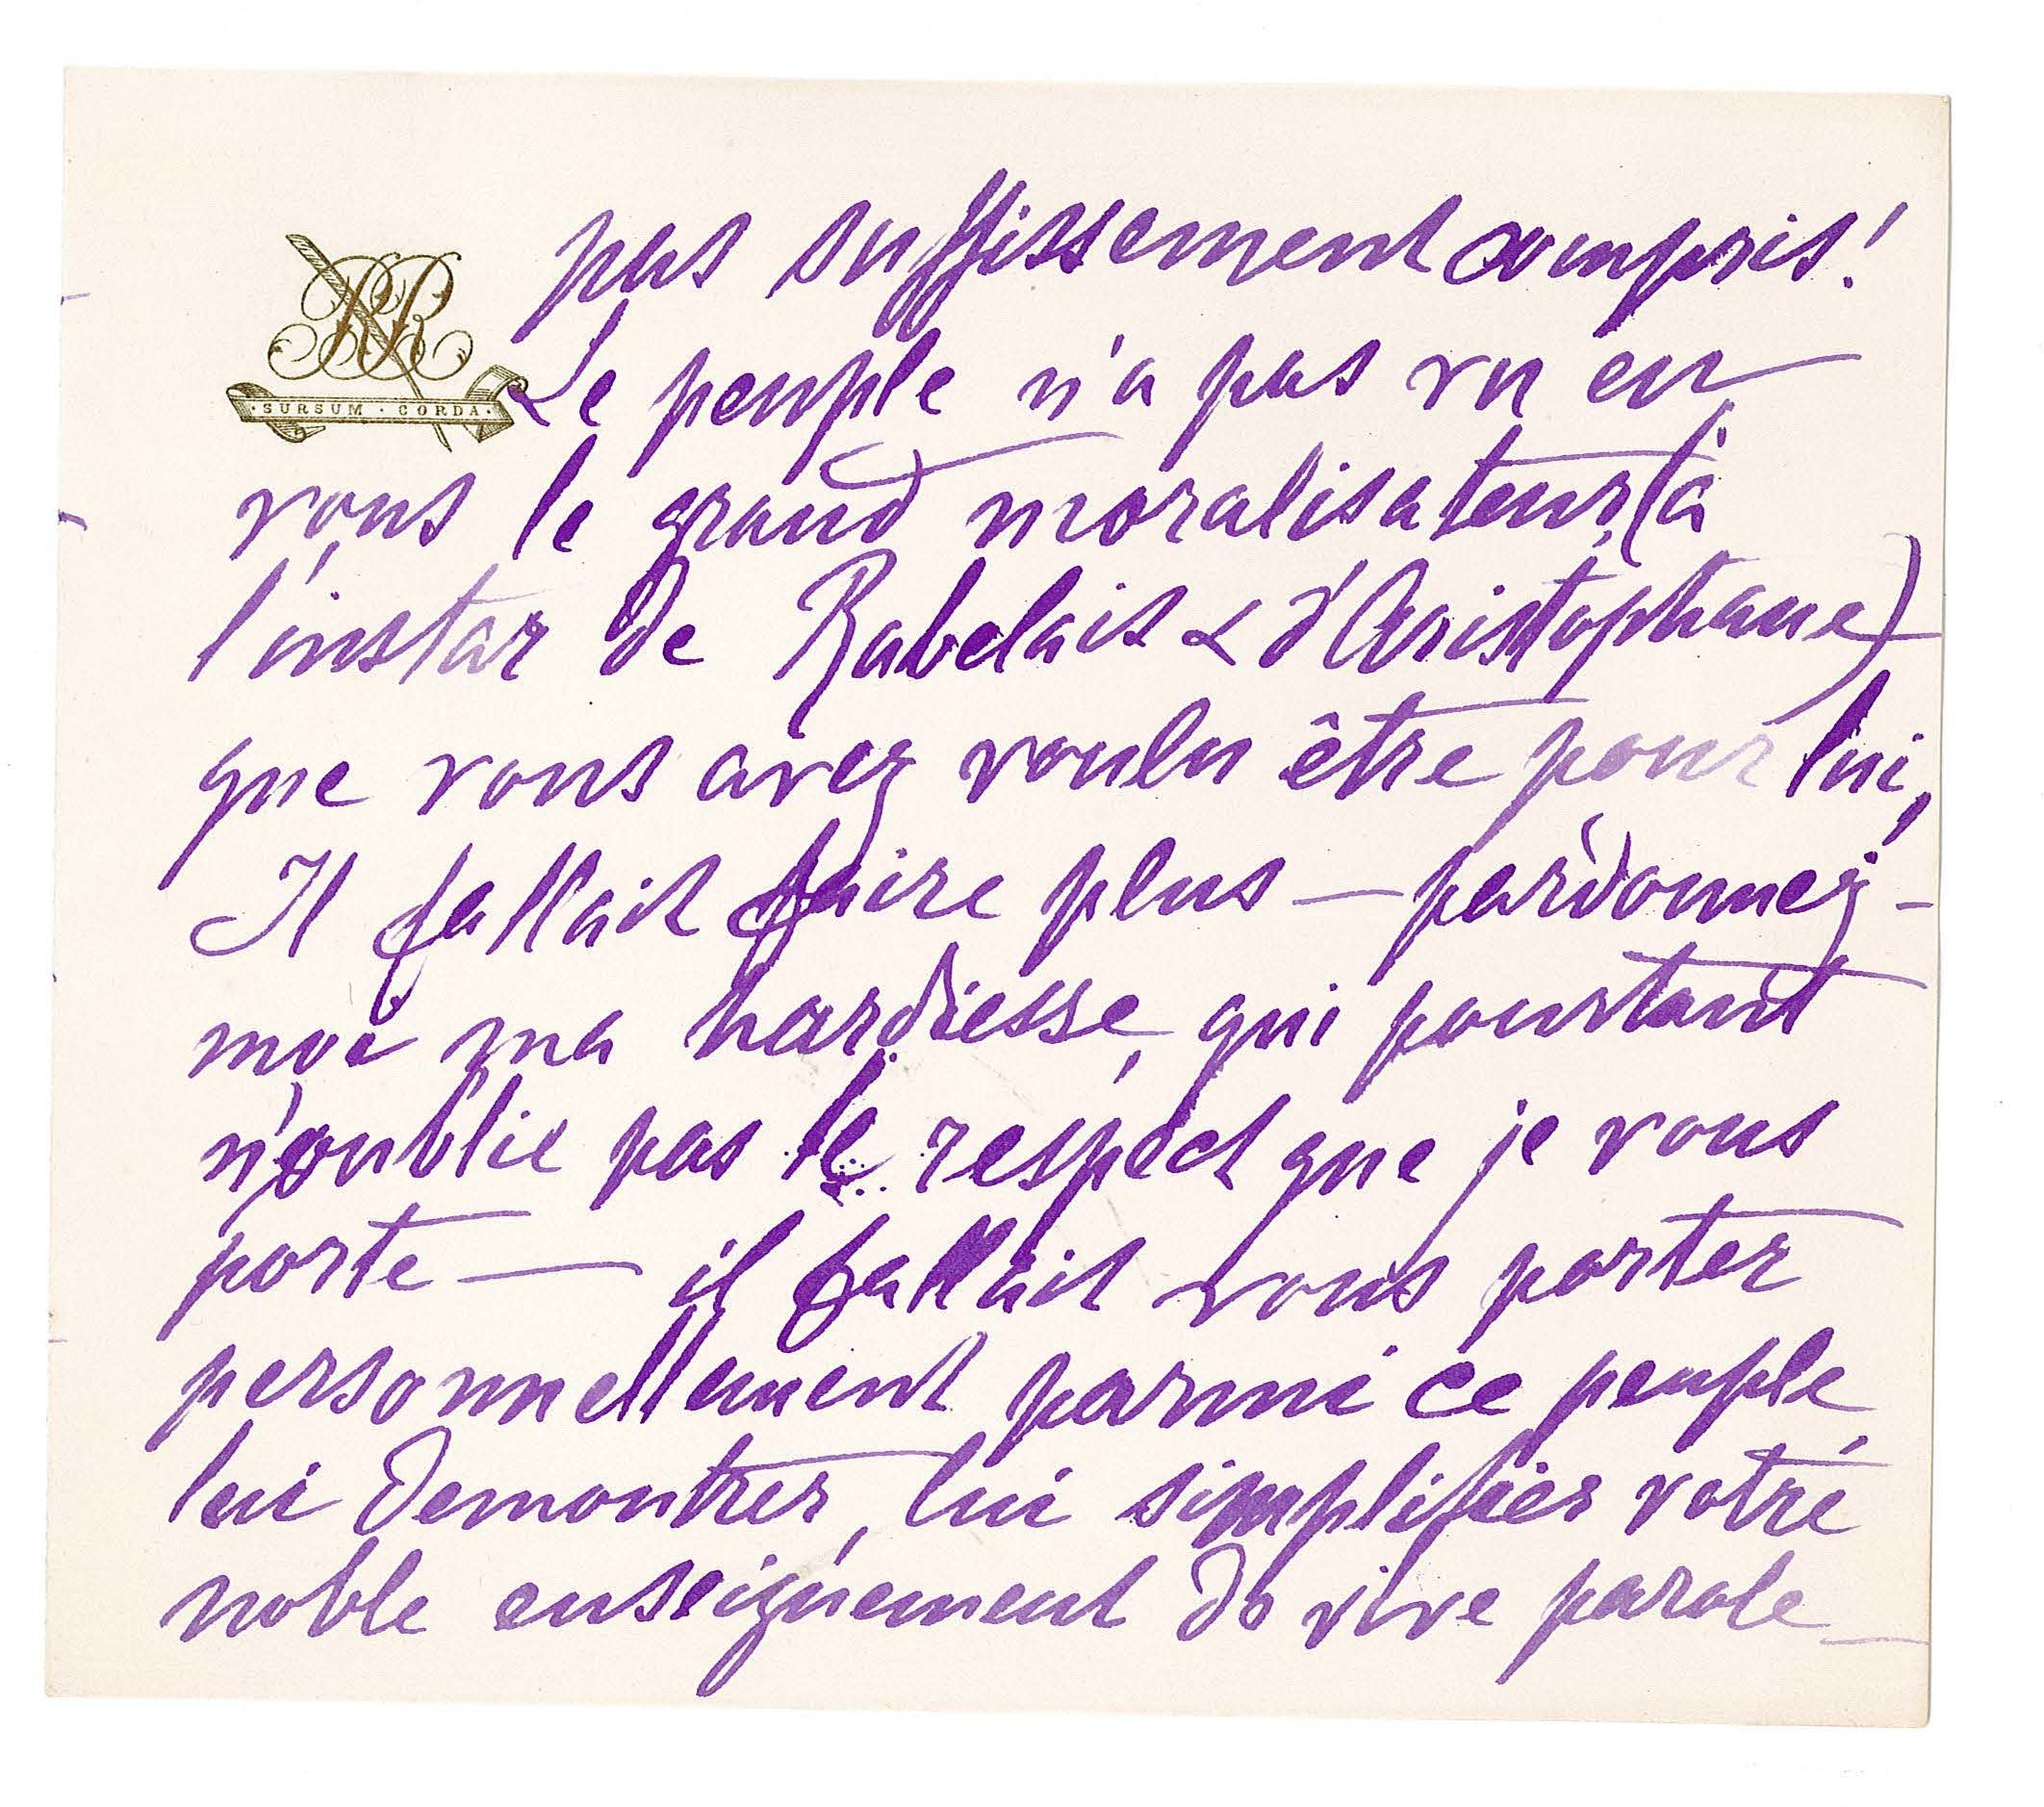 pas suffissement compris!
RR
SURSUM · CORDA
Le peuple n'a pas vu en
vous le grand moralisateur (à
l'instar de Rabelais & d'Aristophane)
que vous avez voulu être pour lui,
Il fallait faire plus — pardonnez-
moi ma hardiesse, qui pourtant
n'oublie pas le respect que je vous
porte — il fallait vous porter
personnellement parmi ce peuple,
lui demontrer, lui simplifier votre
noble enseignement de vive parole —